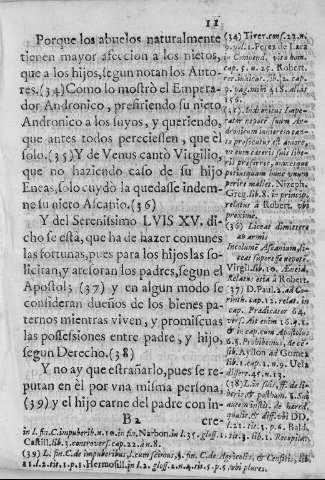 11
Porque los abuelos naturalmente
tienen mayor afeccion a los nietos,
que a los hijos, segun notan los Auto-
res. (34) Como lo mostrò el Empera-
dor Andronico, prefiriendo su nieto
Andronico a los suyos, y queriendo,
que antes todos pereciessen, que èl
solo. (35) Y de Venus cantò Virgilio,
que no haziendo caso de su hijo
Eneas, solo cuydò la quedasse indem-
ne su nieto Ascanio. (36)
Y del Serenissimo LVIS XV. di-
cho se està, que ha de hazer comunes
las fortunas, pues para los hijos las so-
licitan, y atesoran los padres, segun el
Apostol; (37) y en algun modo se
consideran dueños de los bienes pa-
ternos mientras viven, y promiscuas
las possessiones entre padre, y hijo,
segun Derecho. (38)
Y no ay que estrañarlo, pues se re-
putan en èl por vna misma persona,
(39) y el hijo carne del padre con in-
B2 cre-
(34) Tirer. cons. 22. n.
9. vol. 1. Perez de Lara
in Compend. vitæ hum.
cap. 5. n. 25. Robert.
rer. iudicat. lib. 2. cap.
9. pag. mihi 418.
(35) Andronicus Impe-
rator nepotè suum An-
dronicum
prosecutus est amore,
ut eum cæteris suis libe-
ris præferret,
potiusquam hunc vnum
perire mallet. Niceph.
Greg. lib. 8. in princip.
relatus à Robert. vbi
proximè.
(36) Liceat dimittere
ab armis
Incolumè Ascanium, li-
ceat superesse nepotè.
Virgil. lib. 10. Æneid.
Relatus etiã à Robert.
(37) D. Paul. 2. ad Co-
rinth. cap. 12. relat. in
cap.
& in cap. cum Apostolus
6.
Ayllon ad Gomez
lib. 1. cap. 1. n. 2. Vela
dissert. 45. n. 13.
(38) L. in suis, ff. de li-
beris, & posthum. §. Sui
autem instit. de hered.
qualit. & diff. vbi DD.
l. 21. tit. 3. p. 4. Bald.
in l. fin. C. impuberib. n. 10. in fin. Narbon. in l. 35. gloss. 1. tit. 3. lib. 1. Recopilat.
Castill. lib. 3. controvers. cap. 22. à n. 8.
(39) L. fin. C. de impuberibus
11. l. 2. tit. 1. p. 1. Hermosill. in l. 2. gloss. 2. n. 4. tit. 5. p. 5. vbi plures.